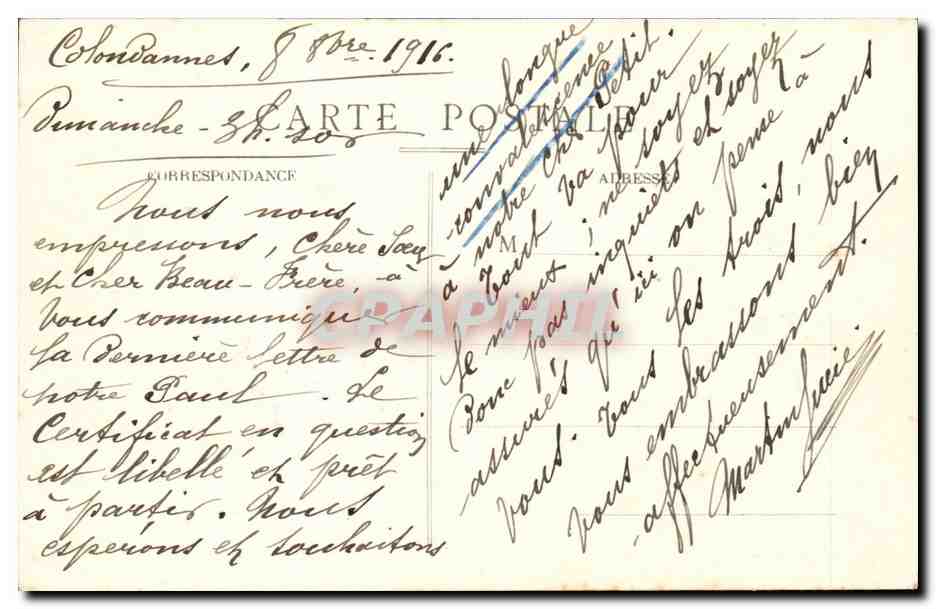 Colondannes, 8 8bre 1916.
Dimanche - 3h. 20s
CARTE POSTALE
CORRESPONDANCE
ADRESSE
M
Nous nous
empressons, Chère Soeur
et Cher Beau-Frère, à
Vous communiquer
la dernière lettre de
notre Paul. Le
Certificat en question
est libellé et prêt
à partir. Nous
espérons et souhaitons
une longue
convalescence
à notre cher Petit.
Tout va pour
le mieux ; ne soyez
Donc pas inquiets et soyez
assurés qu'ici on pense à
Vous. Tous les trois, nous
vous embrassons bien
affectueusement.
Martin Lucie
CPAPHIL